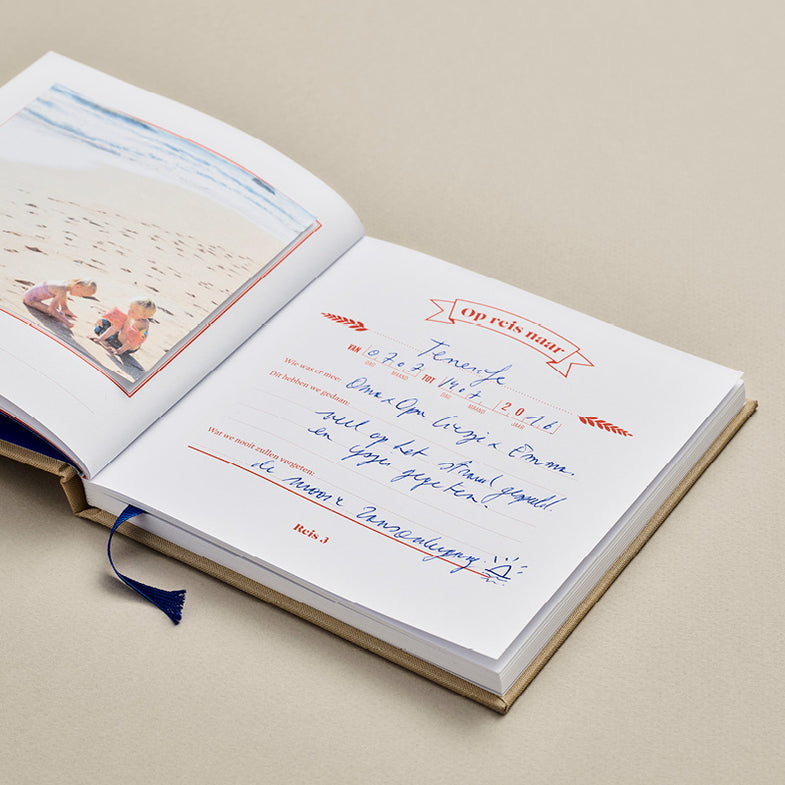 Op reis naar
Tenerife
VAN 07.07 TOT 14.07 2016
DAG MAAND DAG MAAND JAAR
Wie was er mee: Oma & Opa Emma.
Dit hebben we gedaan:
veel op het strand gespeeld.
en ijsjes gegeten.
Wat we nooit zullen vergeten:
de mooie zonsondergang
Reis 3